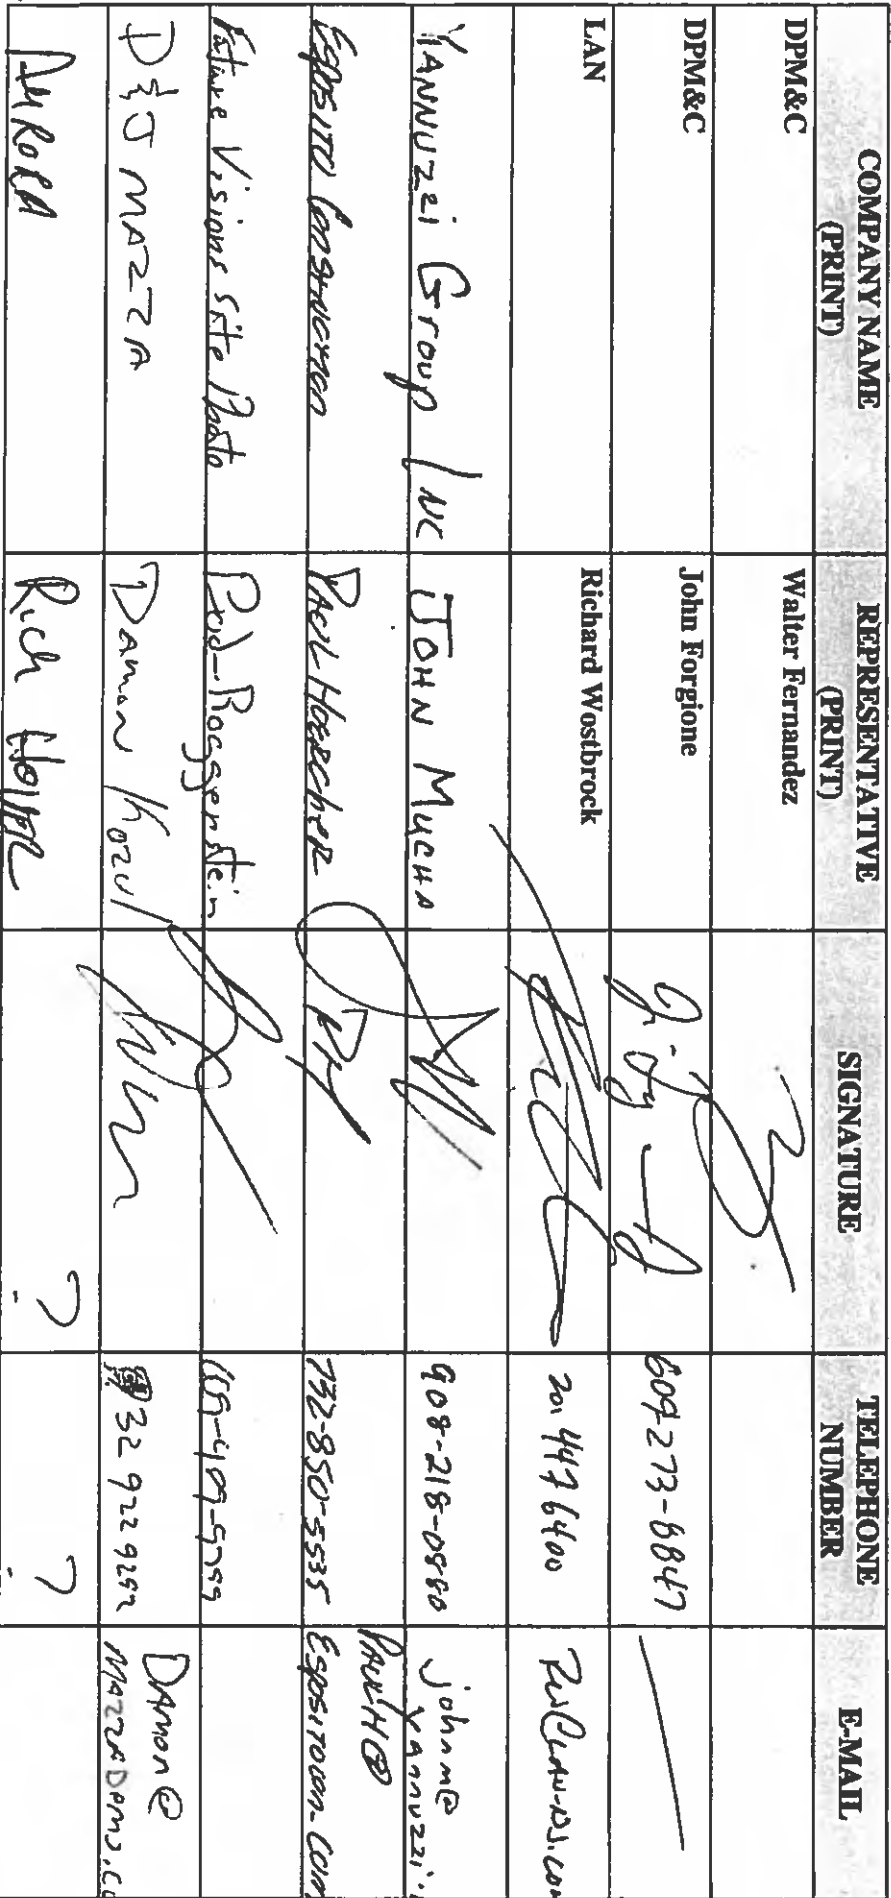 COMPANY NAME (PRINT) REPRESENTATIVE (PRINT) SIGNATURE TELEPHONE NUMBER E-MAIL
DPM&C Walter Fernandez
DPM&C John Forgione 609-273-6847
LAN Richard Wostbrock 201 447 6400 RW@LAN-NJ.com
YANNUZZi Group INC JOHN MUCHA 908-218-0880 johnm@yannuzzi.
ESPOSITO CONSTRUCTION PAUL 732-850-5535 PAULH@
Future Visions Site Photo Rod Roggenstein
D&J MAZZA Damon Kozul 32 922 9292 DAMON@
AURORA Rich ? ?